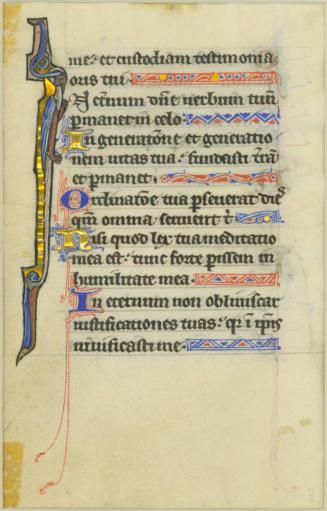 me: et custodiam testimonia
oris tui.
In eternum dn̄e verbum tuū
ꝑmanet in celo.
In generatōne et generatio
nem ueritas tua: fundasti t̄rā
et ꝑmanet.
Ordinatōe tua ꝑseuerat dies
qm̄ omnia seruiunt t̄
Nisi quod lex tua meditatio
mea est: tunc forte ꝑissem in
humilitate mea.
In eternum non obliuiscar
iustificationes tuas: qr̄ ī ip̄is
uiuificasti me.